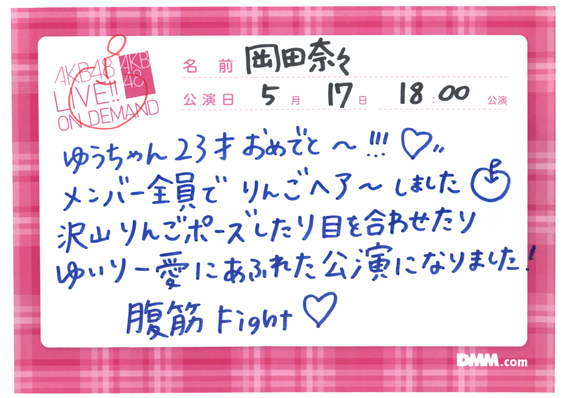 AKB48 AKB48
LIVE!!
ON DEMAND
名前 岡田奈々
公演日 5月17日 18:00公演
ゆうちゃん23才おめでと〜!!!♡
メンバー全員でりんごヘア〜しました
沢山りんごポーズしたり目を合わせたり
ゆいりー愛にあふれた公演になりました!
腹筋Fight♡
DMM.com